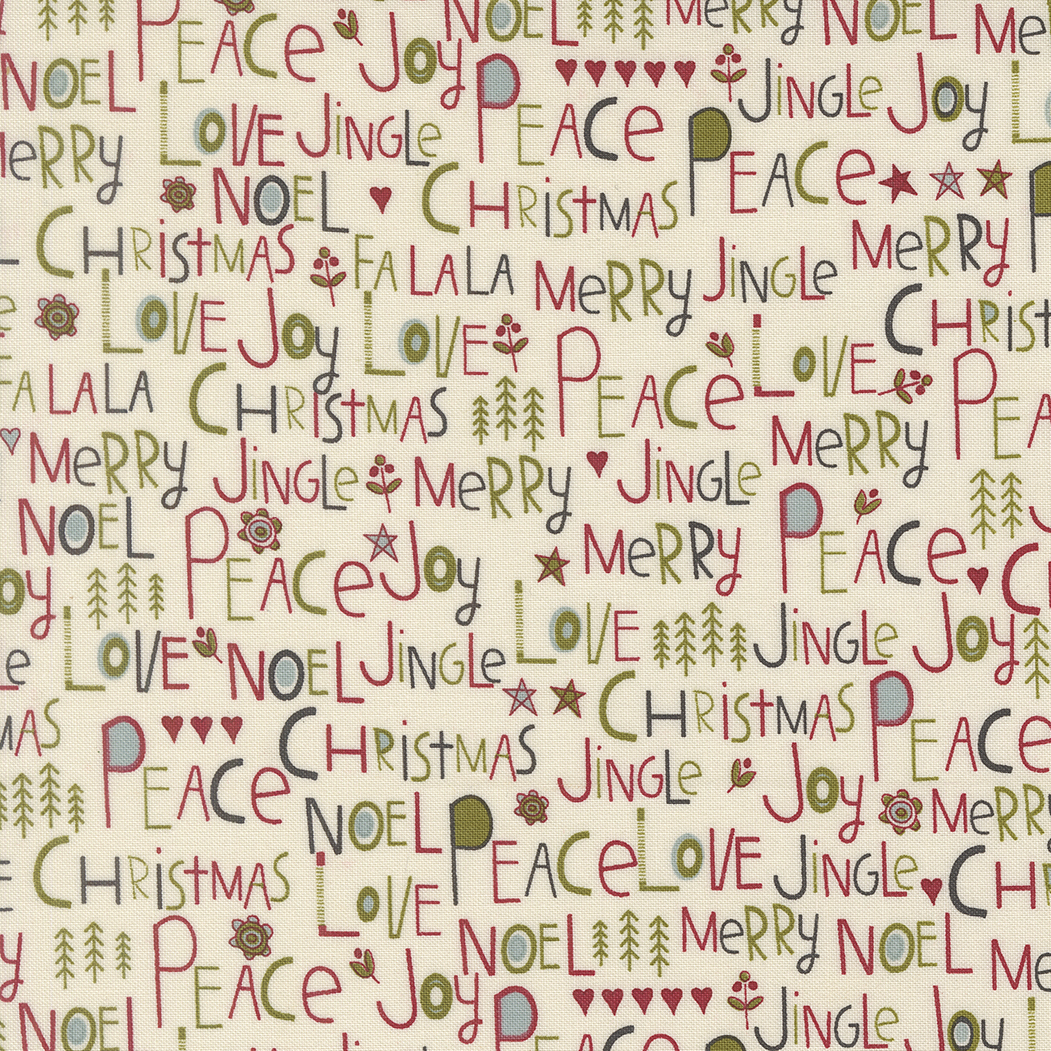 NOEL MeRRy NOEL Me
PeACe Joy
NOEL PeACe JiNGLe Joy L
LOVE JiNGLe
MeRRy PeACe
NOEL CHRiStMAS
CHRiStMAS MeRRy
FALALA MeRRy JiNGLe
LOVE Joy LOVE CHRiSt
PeACe LOVE PeA
FALALA CHRiStMAS
MeRRy JiNGLe MeRRy JiNGLe MeRRy
NOEL PeACe Joy MeRRy PeACe C
Joy LOVE JiNGLe Joy
Le LOVE NOEL JiNGLe
MAS CHRiStMAS PeACe
PeACe CHRiStMAS JiNGLe Joy MeRRy
NOEL PeACe LOVE JiNGLe CHR
CHRiStMAS LOVE
y NOEL MeRRy NOEL Me
PeACe Joy
NOEL PeACe JiNGLe Joy